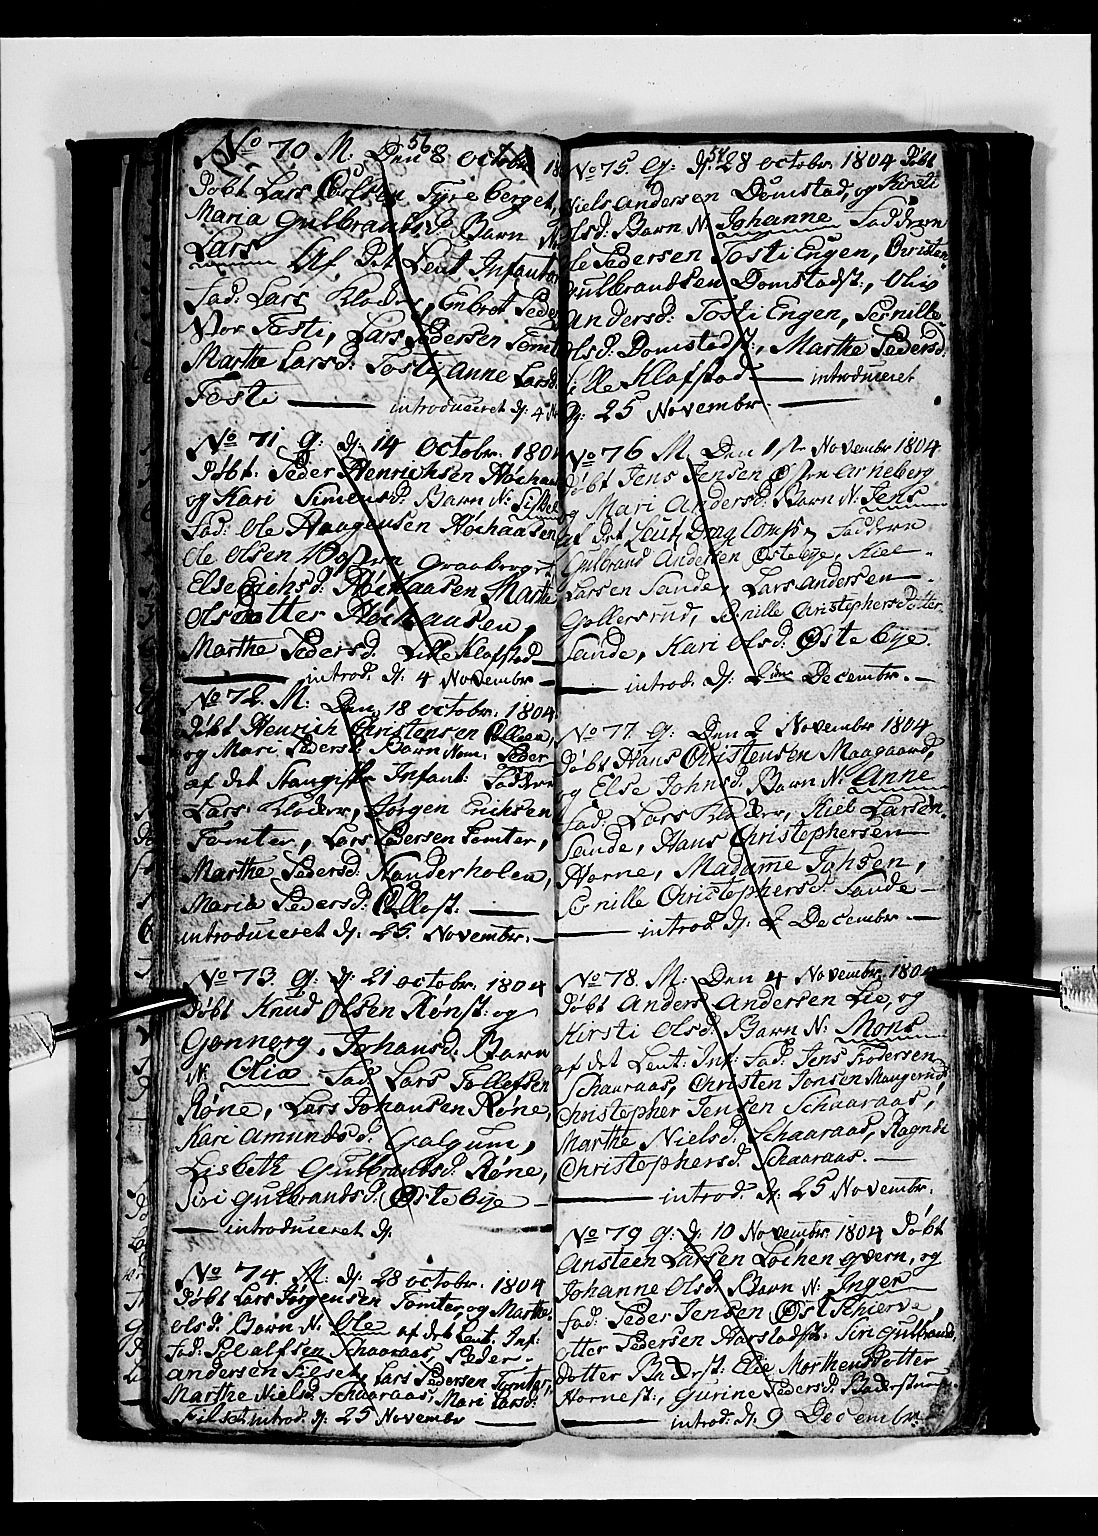 56
No 70 M. Den 8 octobr 18
Døbt Lars Tyreberget,
Maria Gulbrandsd: Barn N:
Lars Af Det Leut Infantr
Fad: Lars Kloder, Peder
Nor Tosti, Lars Pedersen Tomt
Marthe Larsd: Toste, Anne Larsd:
Toste — introduceret d: 4 N
No 71 g: d: 14 Octobr. 180
Døbt. Peder Henrichsen Høihaa
og Kari Simensd: Barn N:
Fad: Ole Haagensen Høihaasen
Ole Olsen Graaberg
Else Erichsd: Høihaasen Marthe
Olsdotter Høihaasen,
Marthe Pedersd: Lille Klafstad —
— introd. d: 4 November —
No 72. M: Den 18 octobr. 1804
Døbt Henrich Christensen
og Mari Pedersd: Barn Nom: Peder
af det Infant: Fadder
Lars Kloder, Jørgen Erichsen
Tomter, Lars Pedersen Tomter,
Marthe Pedersd: Kanderholen,
Maria Pedersd: —
introduceret d: 25. Novembr. —
No 73. g: d: 21 octobr. 1804
Døbt Knud Olsen Rønst: og
Gønnorg. Johansd: Barn
N: Elia Fad Lars Tollefsen
Røne, Lars Johansen Røne,
Kari Amundsd: Galgum,
Lisbeth Gulbrandsd: Røne,
Siri Gulbrandsd: Østebye —
— introduceret d:
No 74. M: d: 28 octobr. 1804
Døbt Lars Jørgensen Tomter, og Marthe
Olsd: Barn N: Ole af det Leut. Inf:
Fad: Schaaraas, Peder
Andersen Filset, Lars Pedersen Tomter,
Marthe Nielsd: Schaaraas, Mari Larsd:
Filset introd. d: 25 November —
57
No 75. g: d: 28 octobr. 1804 Døbt
Niels Andersen Domstad, og Kirsti
Olsd: Barn N: Johanne Faddern
Ole Pedersen Tosti Engen, Christen
Gulbrandsen Domstadst:, Oliv
Andersd: Tosti Engen, Pernille
Olsd: Domstadst:, Marthe Pedersd:
Lille Klafstad — introduceret
d: 25 Novembr. —
No 76 M. Den 1st Novembr 1804
Døbt Jens Jensen Arneberg
og Mari Andersd: Barn N: Jens
af det Leut. Drag Comp: Faddern
Gulbrand Andersen Østebye, Kiel
Larsen Sande, Lars Andersen —
Gollersrud, Pernille ChristophersDotter
Sande, Kari Olsd: Østebye.
— introd. d: 2den Decembr. —
No 77 g: Den 2 Novembr 1804
Døbt Hans Christensen Maagaard,
og Else Johnsd: Barn N: Anne
Fad: Lars Kloder, Kiel Larsen
Sande, Hans Christophersen —
Horne, Madame Johsen,
Pernille Christophersd: Sande —
— introd. d: 2 Decembr —
No 78. M: Den 4 Novembr. 1804
Døbt Anders Andersen Lie, og
Kirsti Olsd: Barn N: Mons
af det Leut: Inf: Fad: Jens Pedersen
Schaaraas, Christen Jonsen Maugerud,
Christopher Jensen Schaaraas,
Marthe Nielsd: Schaaraas, Ragndi
Christophersd: Schaaraas. —
— introd: d: 25 Novembr.
No 79 g: d: 10 Novembr. 1804 Døbt
Ansteen Larsen Løchen qvern, og
Johanne Olsd: Barn N: Inger
Fad: Peder Jensen Øst Khierve,
Otter Pedersen Harstadst: Siri Gulbrands
Dotter Baderst: Elie MorthensDotter
Hornest:, Gurine Pedersd: Baderstuen
— introd. d: 9 Decembr